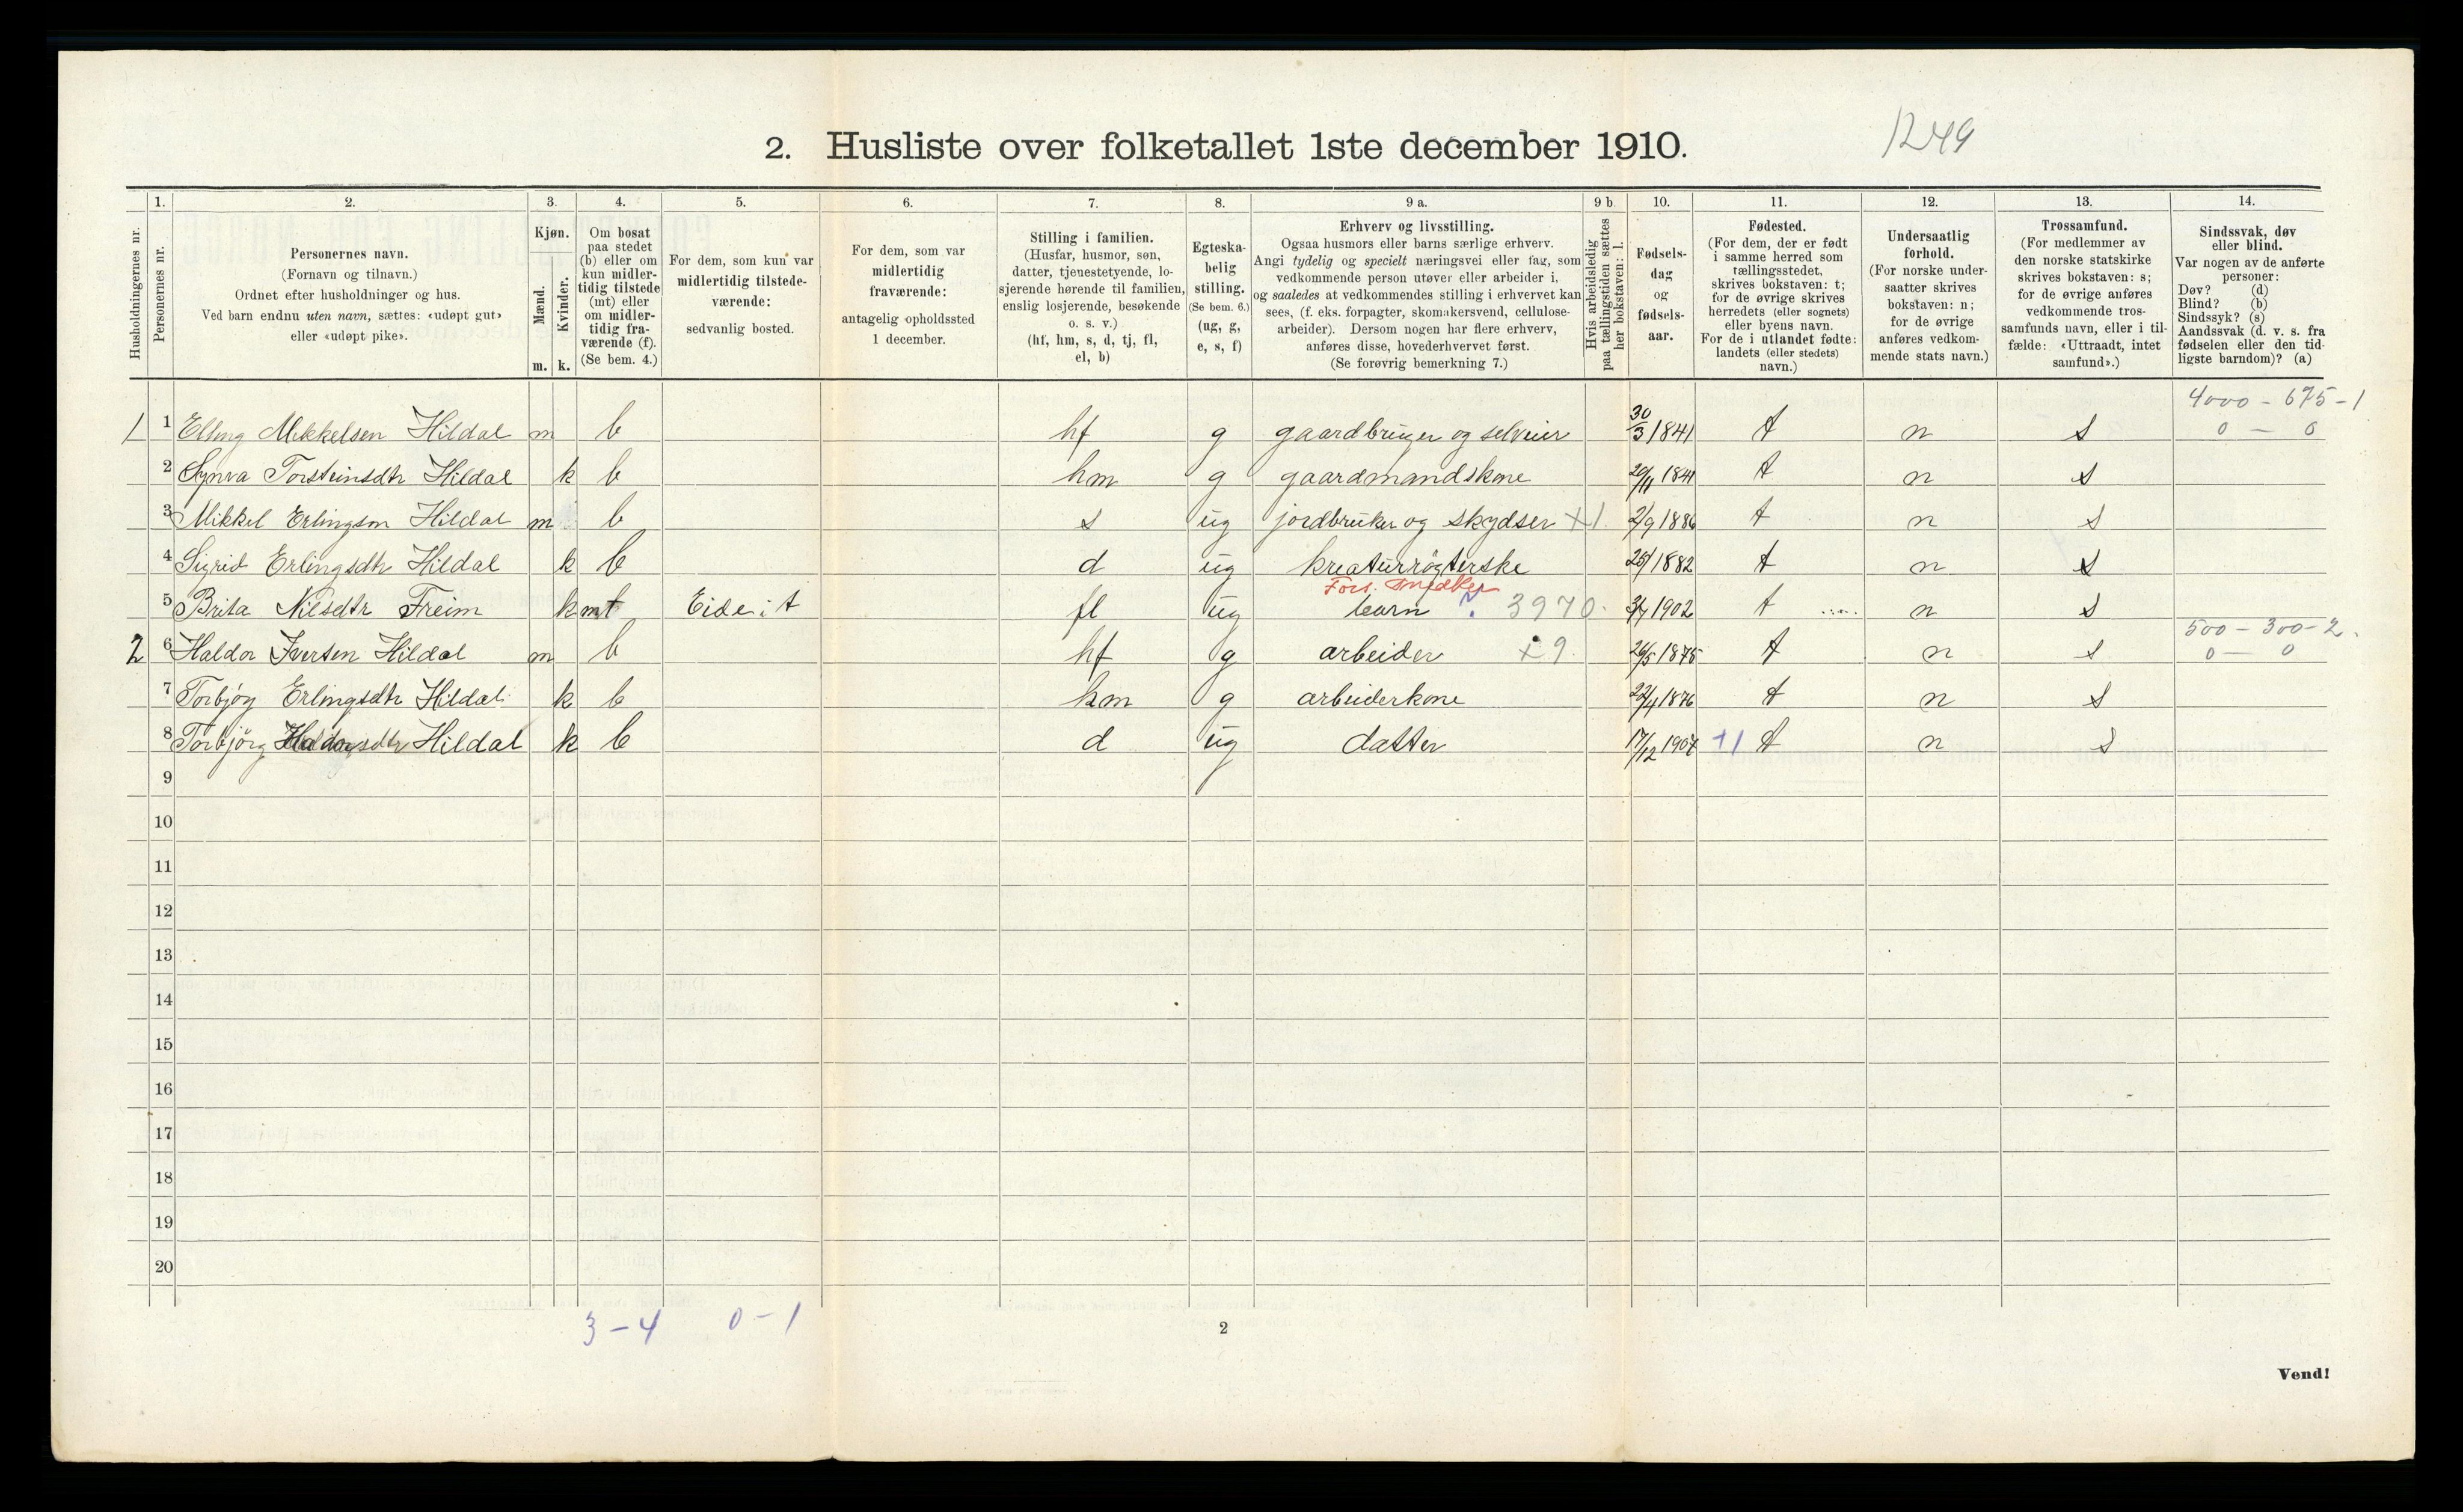 2. Husliste over folketallet 1ste december 1910. 1249
Husholdningernes nr.
1.
Personernes nr.
2.
Personernes navn.
(Fornavn og tilnavn.)
Ordnet efter husholdninger og hus.
Ved barn endnu uten navn, sættes: «udøpt gut»
eller «udøpt pike».
3.
Kjøn.
Mænd.
Kvinder.
m. k.
4.
Om bosat
paa stedet
(b) eller om
kun midler-
tidig tilstede
(mt) eller
om midler-
tidig fra-
værende (f).
(Se bem. 4.)
5.
For dem, som kun var
midlertidig tilstede-
værende:
sedvanlig bosted.
6.
For dem, som var
midlertidig
fraværende:
antagelig opholdssted
1 december.
7.
Stilling i familien.
(Husfar, husmor, søn,
datter, tjenestetyende, lo-
sjerende hørende til familien,
enslig losjerende, besøkende
o. s. v.)
(hf, hm, s, d, tj, fl,
el, b)
8.
Egteska-
belig
stilling.
(Se bem. 6.)
(ug, g,
e, s, f)
9 a.
Erhverv og livsstilling.
Ogsaa husmors eller barns særlige erhverv.
Angi tydelig og specielt næringsvei eller fag, som
vedkommende person utøver eller arbeider i,
og saaledes at vedkommendes stilling i erhvervet kan
sees, (f. eks. forpagter, skomakersvend, cellulose-
arbeider). Dersom nogen har flere erhverv,
anføres disse, hovederhvervet først.
(Se forøvrig bemerkning 7.)
9 b.
Hvis arbeidsledig
paa tællingstiden sættes
her bokstaven: l.
10.
Fødsels-
dag
og
fødsels-
aar.
11.
Fødested.
(For dem, der er født
i samme herred som
tællingsstedet,
skrives bokstaven: t;
for de øvrige skrives
herredets (eller sognets)
eller byens navn.
For de i utlandet fødte:
landets (eller stedets)
navn.)
12.
Undersaatlig
forhold.
(For norske under-
saatter skrives
bokstaven: n;
for de øvrige
anføres vedkom-
mende stats navn.)
13.
Trossamfund.
(For medlemmer av
den norske statskirke
skrives bokstaven: s;
for de øvrige anføres
vedkommende tros-
samfunds navn, eller i til-
fælde: «Uttraadt, intet
samfund».)
14.
Sindssvak, døv
eller blind.
Var nogen av de anførte
personer:
Døv? (d)
Blind? (b)
Sindssyk? (s)
Aandssvak (d. v. s. fra
fødselen eller den tid-
ligste barndom)? (a)
4000 - 675 - 1
1 1 Elling Mikkelsen Hildal m b hf g gaardbruger og selveier 30/3 1841 t n s 0 - 0
2 Synva Torsteinsdtr Hildal k b hm g gaardmandskone 20/11 1841 t n s
3 Mikkel Erlingson Hildal m b s ug jordbruker og skydser +1. 2/9 1886 t n s
4 Sigrid Erlingsdtr Hildal k b d ug kreaturrøgterske 1882 t n s
Fors.
5 Brita Nilsdtr Freim k mt Eide i t fl ug barn ? 3970. 1902 t n s
500 - 300 - 2.
2 6 Haldor Iversen Hildal m b hf g arbeider +9. 26/5 1875 t n s 0 - 0
7 Torbjøg Erlingsdtr Hildal k b hm g arbeiderkone 22/4 1876 t n s
8 Torbjörg Haldorsdtr Hildal k b d ug datter 17/12 1907 +1 t n s
9
10
11
12
13
14
15
16
17
18
19
20
3 - 4 0 - 1
2
Vend!